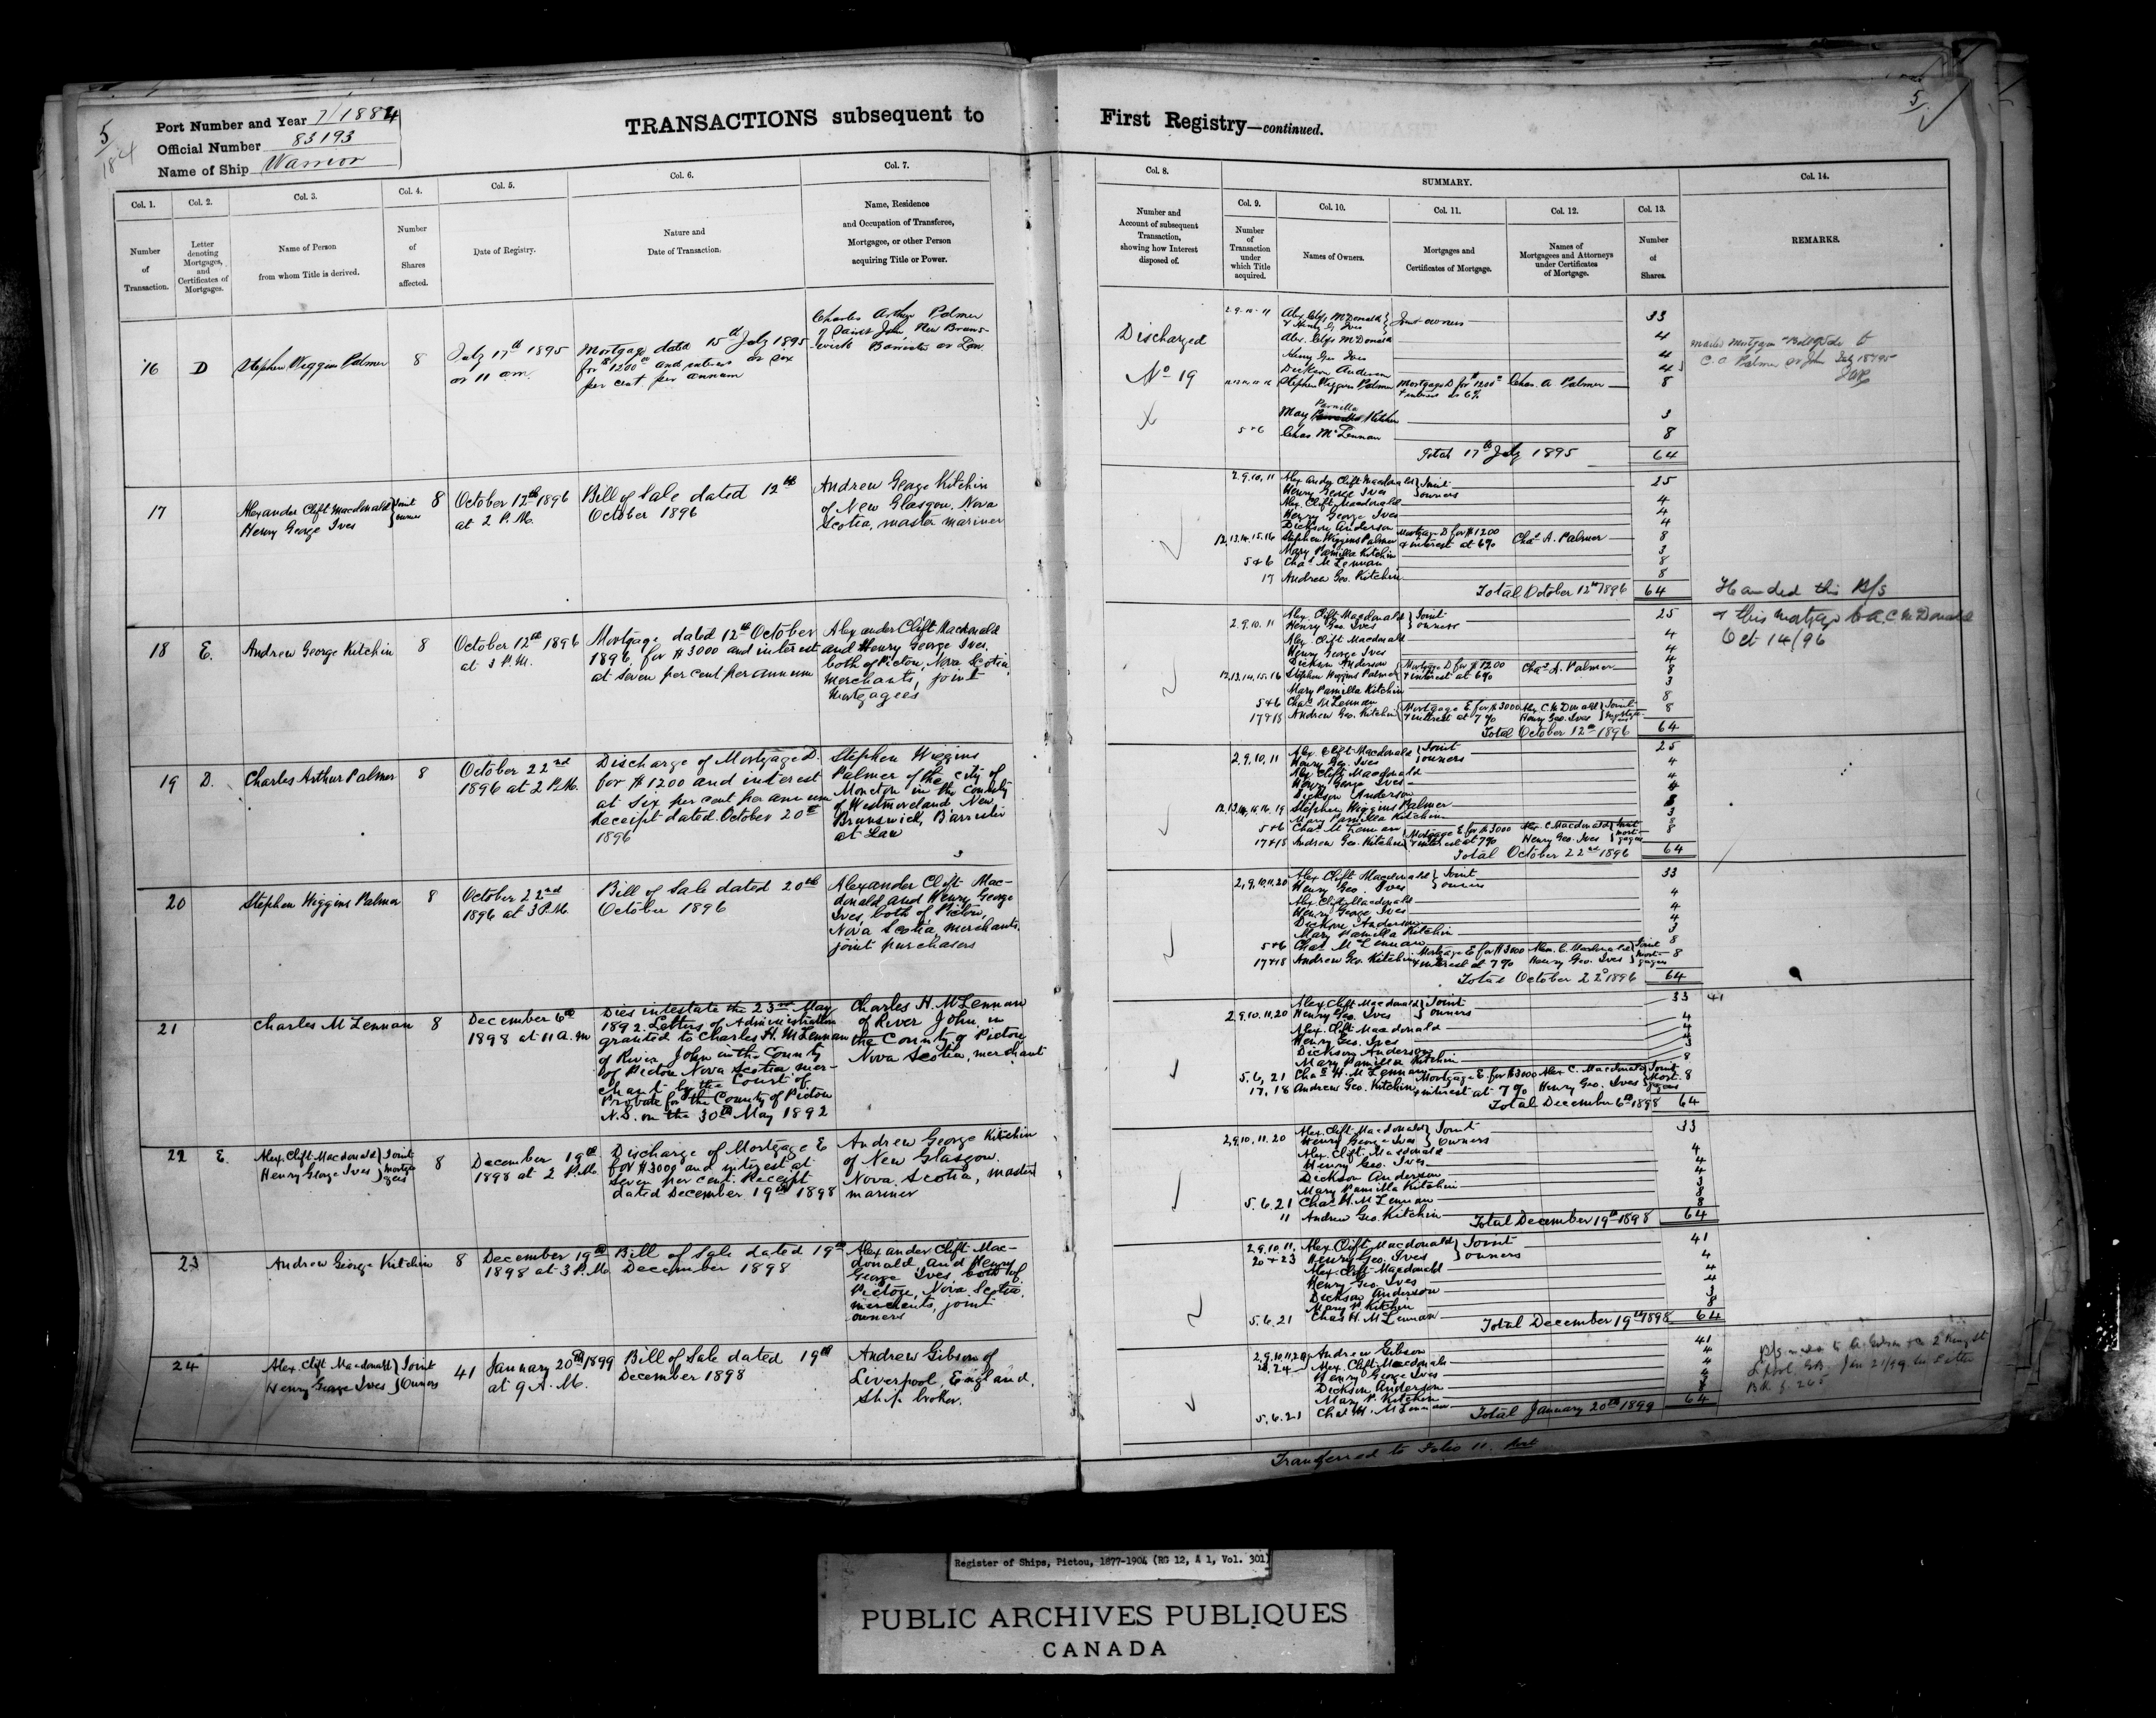 5
184
Port Number and Year 7/1884
Official Number 83193
Name of Ship Warrior
TRANSACTIONS subsequent to
Col. 1.
Col. 2.
Col. 3.
Col. 4.
Col. 5.
Col. 6.
Col. 7.
Number
of
Transaction.
Letter
denoting
Mortgages,
and
Certificates of
Mortgages.
Name of Person
from whom Title is derived.
Number
of
Shares
affected.
Date of Registry.
Nature and
Date of Transaction.
Name, Residence
and Occupation of Transferee,
Mortgagee, or other Person
acquiring Title or Power.
16
D
Stephen Wiggins Palmer
8
July 17th 1895
at 11 am.
Mortgage dated 15th July 1895
for $1200 and interest at six
per cent per annum
Charles Arthur Palmer
of Saint John New Bruns-
wick Barrister at Law
17
Alexander Clift Macdonald } Joint
Henry George Ives } owners
8
October 12th 1896
at 2 P.M.
Bill of Sale dated 12th
October 1896
Andrew George Kitchin
of New Glasgow, Nova
Scotia, master mariner
18
E.
Andrew George Kitchin
8
October 12th 1896
at 3 P.M.
Mortgage dated 12th October
1896, for $3000 and interest
at seven per cent per annum
Alexander Clift Macdonald
and Henry George Ives,
both of Pictou, Nova Scotia,
merchants, joint
mortgagees
19
D.
Charles Arthur Palmer
8
October 22nd
1896 at 2 P.M.
Discharge of Mortgage D.
for $1200 and interest
at six per cent per annum
Receipt dated October 20th
1896
Stephen Wiggins
Palmer of the city of
Moncton in the County
of Westmoreland New
Brunswick, Barrister
at Law
20
Stephen Wiggins Palmer
8
October 22nd
1896 at 3 P.M.
Bill of Sale dated 20th
October 1896
Alexander Clift Mac-
donald and Henry George
Ives, both of Pictou,
Nova Scotia, merchants,
joint purchasers
21
Charles McLennan
8
December 6th
1898 at 11 a.m
Dies intestate the 23rd May
1892. Letters of Administration
granted to Charles H. McLennan
of River John in the County
of Pictou Nova Scotia mer-
chant by the Court of
Probate for the County of Pictou
N.S. on the 30th May 1892
Charles H. McLennan
of River John, in
the County of Pictou
Nova Scotia, merchant
22
E.
Alex. Clift Macdonald } Joint
Henry George Ives } mortga-
gees
8
December 19th
1898 at 2 P.M.
Discharge of Mortgage E
for $3000 and interest at
seven per cent. Receipt
dated December 19th 1898
Andrew George Kitchin
of New Glasgow,
Nova Scotia, master
mariner
23
Andrew George Kitchin
8
December 19th
1898 at 3 P.M.
Bill of Sale dated 19th
December 1898
Alexander Clift Mac-
donald, and Henry
George Ives, both of
Pictou, Nova Scotia,
merchants, joint
owners
24
Alex. Clift Macdonald } Joint
Henry George Ives } Owners
41
January 20th 1899
at 9 A.M.
Bill of Sale dated 19th
December 1898
Andrew Gibson of
Liverpool, England,
Ship broker.
5
First Registry—continued.
Col. 8.
SUMMARY.
Col. 9.
Col. 10.
Col. 11.
Col. 12.
Col. 13.
Col. 14.
Number and
Account of subsequent
Transaction,
showing how Interest
disposed of.
Number
of
Transaction
under
which Title
acquired.
Names of Owners.
Mortgages and
Certificates of Mortgage.
Names of
Mortgagees and Attorneys
under Certificates
of Mortgage.
Number
of
Shares.
REMARKS.
Discharged
No 19
2.9.10.11 Alex. Clift McDonald } Joint owners 33
& Henry G Ives
Alex. Clift McDonald 4
Henry Geo Ives 4
Dickson Anderson 4
Stephen Wiggins Palmer Mortgage D for $1200 Chas. A Palmer 8
& interest at 6%
Parnella
May Kitchin 3
5+6 Chas. McLennan 8
Total 17th July 1895 64
2.9.10, 11 Alexander Clift Macdonald } Joint 25
Henry George Ives } owners
Alex. Clift Macdonald 4
Henry George Ives 4
Dickson Anderson 4
12,13,14,15,16 Stephen Wiggins Palmer Mortgage D for $1200 Chas A. Palmer 8
& interest at 6%
Mary Pamilla Kitchin 3
5+6 Chas McLennan 8
17 Andrew Geo. Kitchin 8
Total October 12th 1896 64
Handed this B/S
& this mortgage to A.C. McDonald
Oct 14/96
2.9.10.11 Alex. Clift Macdonald } Joint 25
Henry Geo. Ives } owners
Alex. Clift Macdonald 4
Henry George Ives 4
Dickson Anderson 4
12,13,14,15,16 Stephen Wiggins Palmer { Mortgage D for $1200 Chas A. Palmer 8
& interest at 6%
Mary Pamilla Kitchin 3
5+6 Chas McLennan 8
17+18 Andrew Geo. Kitchin { Mortgage E for $3000 Alex. C McDonald } Joint 8
& interest at 7% Henry Geo. Ives } mortga-
gees
Total October 12th 1896 64
2,9,10,11 Alex. Clift Macdonald } Joint 25
Henry Geo. Ives } owners
Alex Clift Macdonald 4
Henry George Ives 4
Dickson Anderson 4
12,13,14,15,16,19 Stephen Wiggins Palmer 8
Mary Pamilla Kitchin 3
5+6 Chas McLennan 8
17+18 Andrew Geo. Kitchin { Mortgage E for $3000 Alex. C Macdonald } Joint 8
& interest at 7% Henry Geo. Ives } mort-
gagees
Total October 22nd 1896 64
2,9,10,11,20 Alex Clift Macdonald } Joint 33
Henry Geo. Ives } owners
Alex. Clift Macdonald 4
Henry George Ives 4
Dickson Anderson 4
Mary Pamilla Kitchin 3
5+6 Chas McLennan 8
17+18 Andrew Geo. Kitchin Mortgage E for $3000 Alex. C. Macdonald } Joint 8
& interest at 7% Henry Geo. Ives } mort-
gagees
Total October 22d 1896 64
2,9,10.11.20 Alex Clift Macdonald } Joint 33 41
Henry Geo. Ives } owners
Alex. Clift Macdonald 4
Henry Geo. Ives 4
Dickson Anderson 4
Mary Pamilla Kitchin 3
5.6, 21 Chas H. McLennan 8
17, 18 Andrew Geo. Kitchin Mortgage E for $3000 Alex C. Macdonald } Joint 8
& interest at 7% Henry Geo. Ives } Mort-
gagees
Total December 6th 1898 64
2,9,10.11.20 Alex Clift Macdonald } Joint 33
Henry George Ives } Owners
Alex. Clift Macdonald 4
Henry Geo. Ives 4
Dickson Anderson 4
Mary Pamilla Kitchin 3
5.6.21 Chas H. McLennan 8
Andrew Geo. Kitchin 8
Total December 19th 1898 64
2.9.10.11. Alex. Clift Macdonald } Joint 41
20+23 Henry Geo. Ives } owners
Alex Clift Macdonald 4
Henry Geo. Ives 4
Dickson Anderson 4
Mary P. Kitchin 3
5.6.21 Chas H. McLennan 8
Total December 19th 1898 64
2,9,10,11,20 Andrew Gibson 41
23.24 Alex. Clift Macdonald 4
Henry George Ives 4
Dickson Anderson 4
Mary P. Kitchin 3
5.6.21 Chas H. McLennan 8
Total January 20th 1899 64
Transferred to Folio 11.
Register of Ships, Pictou, 1877-1904 (RG 12, A 1, Vol. 301)
PUBLIC ARCHIVES PUBLIQUES
CANADA